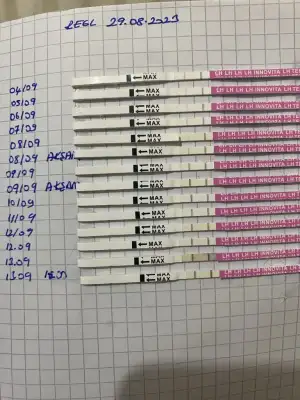 REGL 29.08.2023
04/09 MAX LH LH LH LH INNOVITA LH TE
05/09 MAX LH LH LH LH INNOVITA LH TE
06/09 MAX LH LH LH LH INNOVITA LH
07/09 MAX LH LH LH LH INNOVITA LH TE
08/09 MAX LH LH LH LH INNOVITA LH TE
08/09 AKŞAM MAX LH LH LH LH INNOVITA LH
09/09 MAX LH LH LH LH INNOVITA LH
09/09 AKŞAM MAX LH LH LH LH INNOVITA LH TE
10/09 MAX LH LH LH LH INNOVITA LH
11/09 MAX LH LH LH LH INNOVITA LH TE
12/09 MAX LH LH LH LH INNOVITA LH
12.09 MAX LH LH LH LH INNOVITA LH
13.09 MAX LH LH LH LH INNOVITA LH
13.09 MAX LH LH LH LH INNOVITA